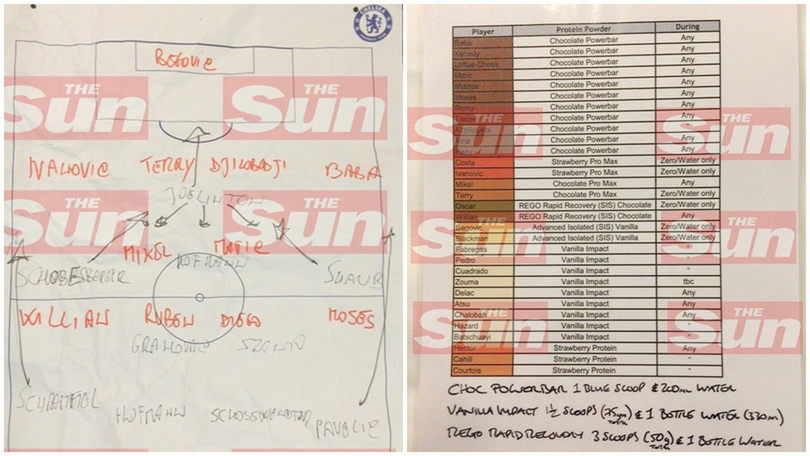 CHELSEA
BEGOVIC
IVANOVIC TERRY DJILOBODJI BABA
JOELINTON
MIKEL MATIC
HOFMANN
SCHOBESBERGER SCHAUB
WILLIAN RUBEN DIEGO MOSES
GRAHOVAC SZANTO
HOFMANN PAVELIC
THE Sun
THE Sun
THE Sun
THE Sun
THE Sun
THE Sun
Player Protein Powder During
Baba Chocolate Powerbar Any
Kenedy Chocolate Powerbar Any
Loftus-Cheek Chocolate Powerbar Any
Matic Chocolate Powerbar Any
Miazga Chocolate Powerbar Any
Moses Chocolate Powerbar Any
Remy Chocolate Powerbar Any
Traore Chocolate Powerbar Any
Azpilicueta Chocolate Powerbar Any
Aina Chocolate Powerbar Any
Chocolate Powerbar Any
Costa Strawberry Pro Max Zero/Water only
Ivanovic Strawberry Pro Max Zero/Water only
Mikel Chocolate Pro Max Any
Terry Chocolate Pro Max Zero/Water only
Oscar REGO Rapid Recovery (SIS) Chocolate Zero/Water only
Willian REGO Rapid Recovery (SIS) Chocolate Any
Begovic Advanced Isolated (SIS) Vanilla Zero/Water only
Blackman Advanced Isolated (SIS) Vanilla Zero/Water only
Fabregas Vanilla Impact
Pedro Vanilla Impact "
Cuadrado Vanilla Impact "
Zouma Vanilla Impact tbc
Delac Vanilla Impact Any
Atsu Vanilla Impact Any
Chalobah Vanilla Impact Any
Hazard Vanilla Impact "
Batschuayi Vanilla Impact "
Hector Strawberry Protein Any
Cahill Strawberry Protein "
Courtois Strawberry Protein "
CHOC POWERBAR 1 BLUE SCOOP & 200ml WATER
VANILLA IMPACT 1½ SCOOPS (75gm TOTAL) & 1 BOTTLE WATER (330ml)
REGO RAPID RECOVERY 3 SCOOPS (50g TOTAL) & 1 BOTTLE WATER